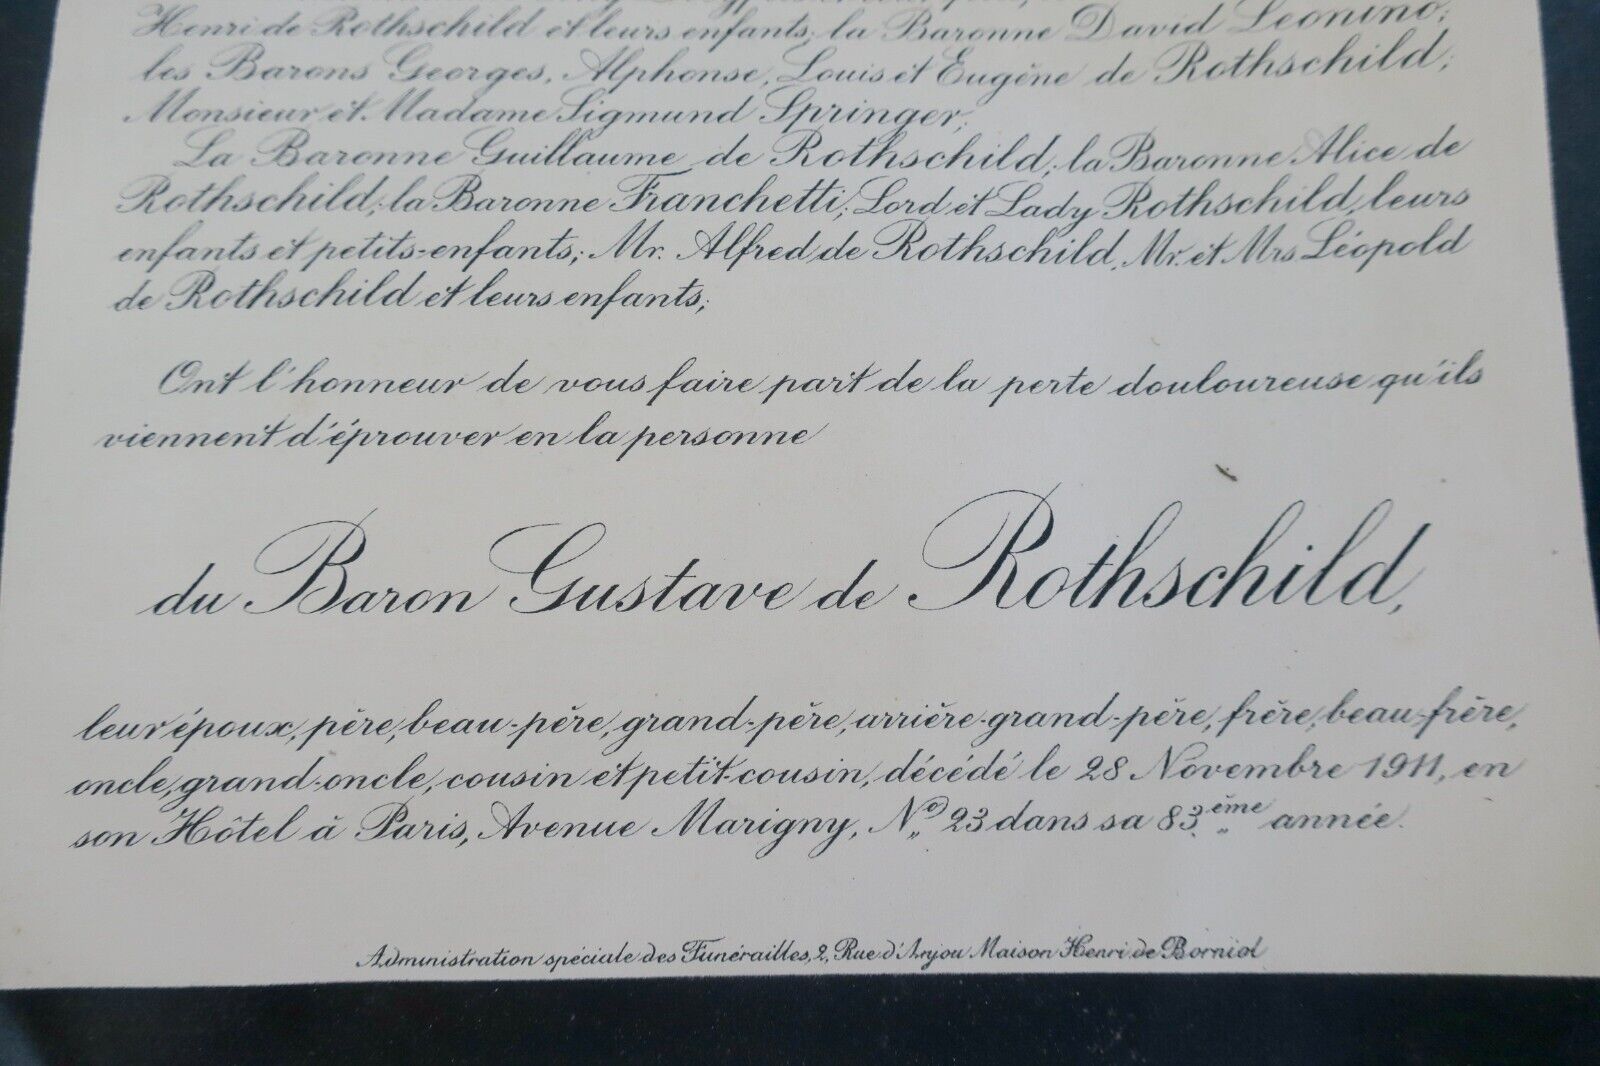 Henri de Rothschild et leurs enfants; la Baronne David Leonino;
les Barons Georges, Alphonse, Louis et Eugène de Rothschild;
Monsieur et Madame Sigmund Springer;
La Baronne Guillaume de Rothschild; la Baronne Alice de
Rothschild; la Baronne Franchetti; Lord et Lady Rothschild, leurs
enfants et petits-enfants; Mr. Alfred de Rothschild, Mr. et Mrs Léopold
de Rothschild et leurs enfants;
Ont l'honneur de vous faire part de la perte douloureuse qu'ils
viennent d'éprouver en la personne
du Baron Gustave de Rothschild,
leur époux, père, beau-père, grand-père, arrière-grand-père, frère, beau-frère,
oncle, grand-oncle, cousin et petit-cousin, décédé le 28 Novembre 1911, en
son Hôtel à Paris, Avenue Marigny, No 23 dans sa 83ème année.
Administration spéciale des Funérailles, 2, Rue d'Anjou Maison Henri de Borniol